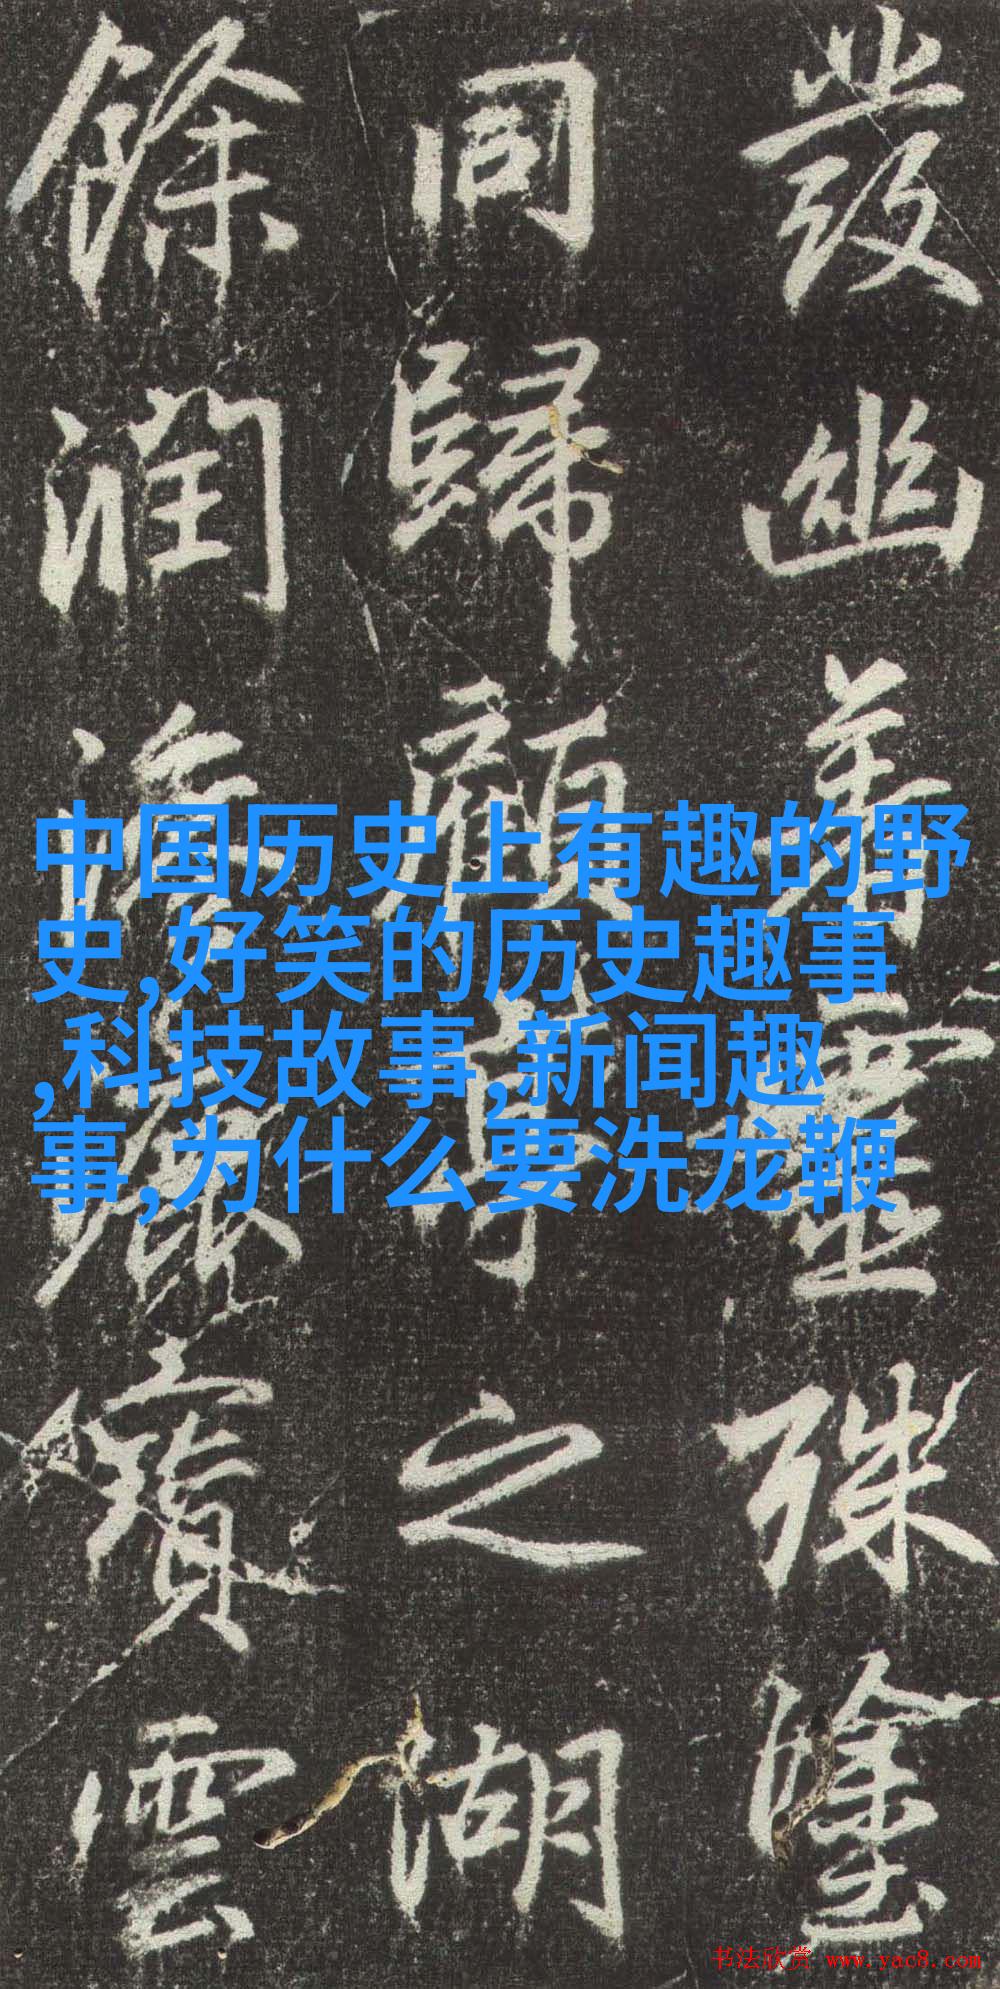 發幽靈殊
同歸之湖
餘潤雲
中国历史上有趣的野
史,好笑的历史趣事
,科技故事,新闻趣
事,为什么要洗龙鞭
书法欣赏 www.yac8.com